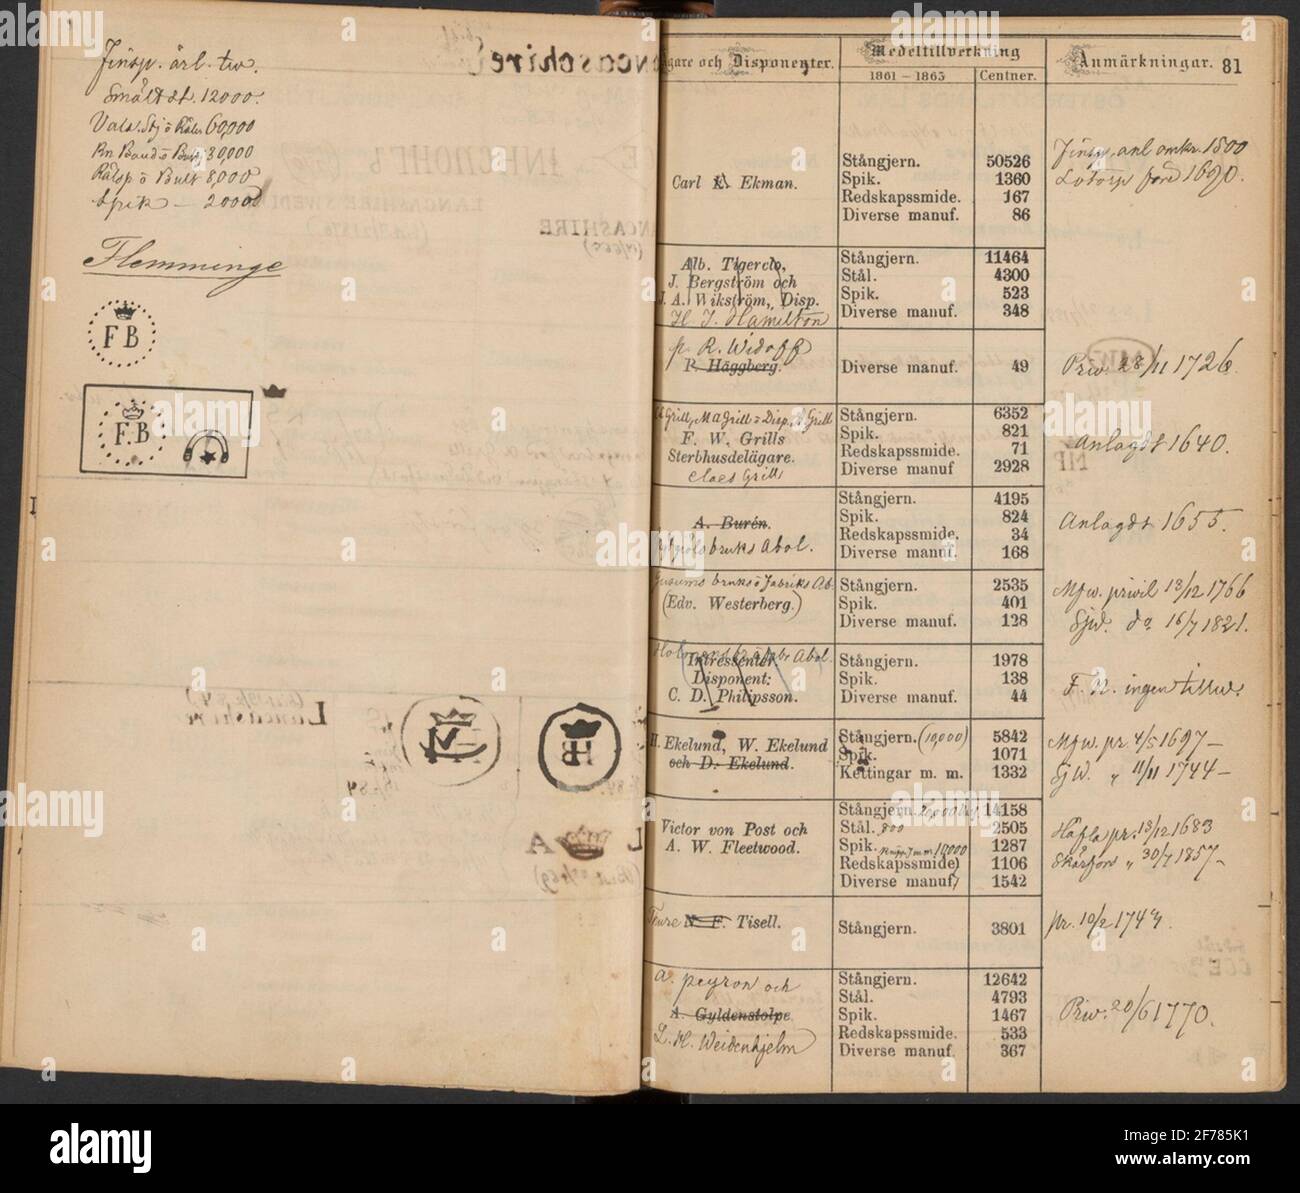 Finsp. årl. tv.
Smältst. 12000.
60,000
30,000
Rälsp o Bult 8,000
Spik — 20000
Flemminge
F B
F.B
Lancashire
LANCASHIRE
Lancashire
HB
A
gare och Disponenter.
Medeltillverkning
1861 – 1865
Centner.
Anmärkningar.
81
Carl E. Ekman.
Stångjern. 50526
Spik. 1360
Redskapssmide. 167
Diverse manuf. 86
Finsp. anl omkr. 1500
Lotorp före 1690.
Alb. Tigerclo,
J. Bergström och
J. A. Wikström, Disp.
H. J. Hamilton
Stångjern. 11464
Stål. 4300
Spik. 523
Diverse manuf. 348
p. R. Widoff
P. Häggberg.
Diverse manuf. 49
Priv. 28/11 1726.
Grill, M A Grill o Disp. Grill
F. W. Grills
Sterbhusdelägare.
Claes Grill
Stångjern. 6352
Spik. 821
Redskapssmide. 71
Diverse manuf 2928
Anlagdt 1640.
A. Burén.
bruks Abol.
Stångjern. 4195
Spik. 824
Redskapssmide. 34
Diverse manuf. 168
Anlagdt 1655.
Gusums bruks o Fabriks Ab.
(Edv. Westerberg.)
Stångjern. 2535
Spik. 401
Diverse manuf. 128
Mfw. privil 13/12 1766
Sjw. do 16/7 1821.
Abol.
Intressenter
Disponent:
C. D. Philipsson.
Stångjern. 1978
Spik. 138
Diverse manuf. 44
F. N. ingen tillw.
H. Ekelund, W. Ekelund
och D. Ekelund.
Stångjern. (10,000) 5842
Spik. 1071
Kettingar m. m. 1332
Mfw. pr. 4/5 1697 –
Sjw. " 11/11 1744 –
Victor von Post och
A. W. Fleetwood.
Stångjern. 14158
Stål. 800 2505
Spik. 10,000 1287
Redskapssmide) 1106
Diverse manuf) 1542
Häfla pr. 13/12 1683
" 30/7 1857 –
Ture N. F. Tisell.
Stångjern. 3801
pr. 10/2 1743.
A. Peyron och
A. Gyldenstolpe
L. H. Weidenhjelm
Stångjern. 12642
Stål. 4793
Spik. 1467
Redskapssmide. 533
Diverse manuf. 367
Priv. 20/6 1770.
alamy
Image ID: 2F785K1
www.alamy.com